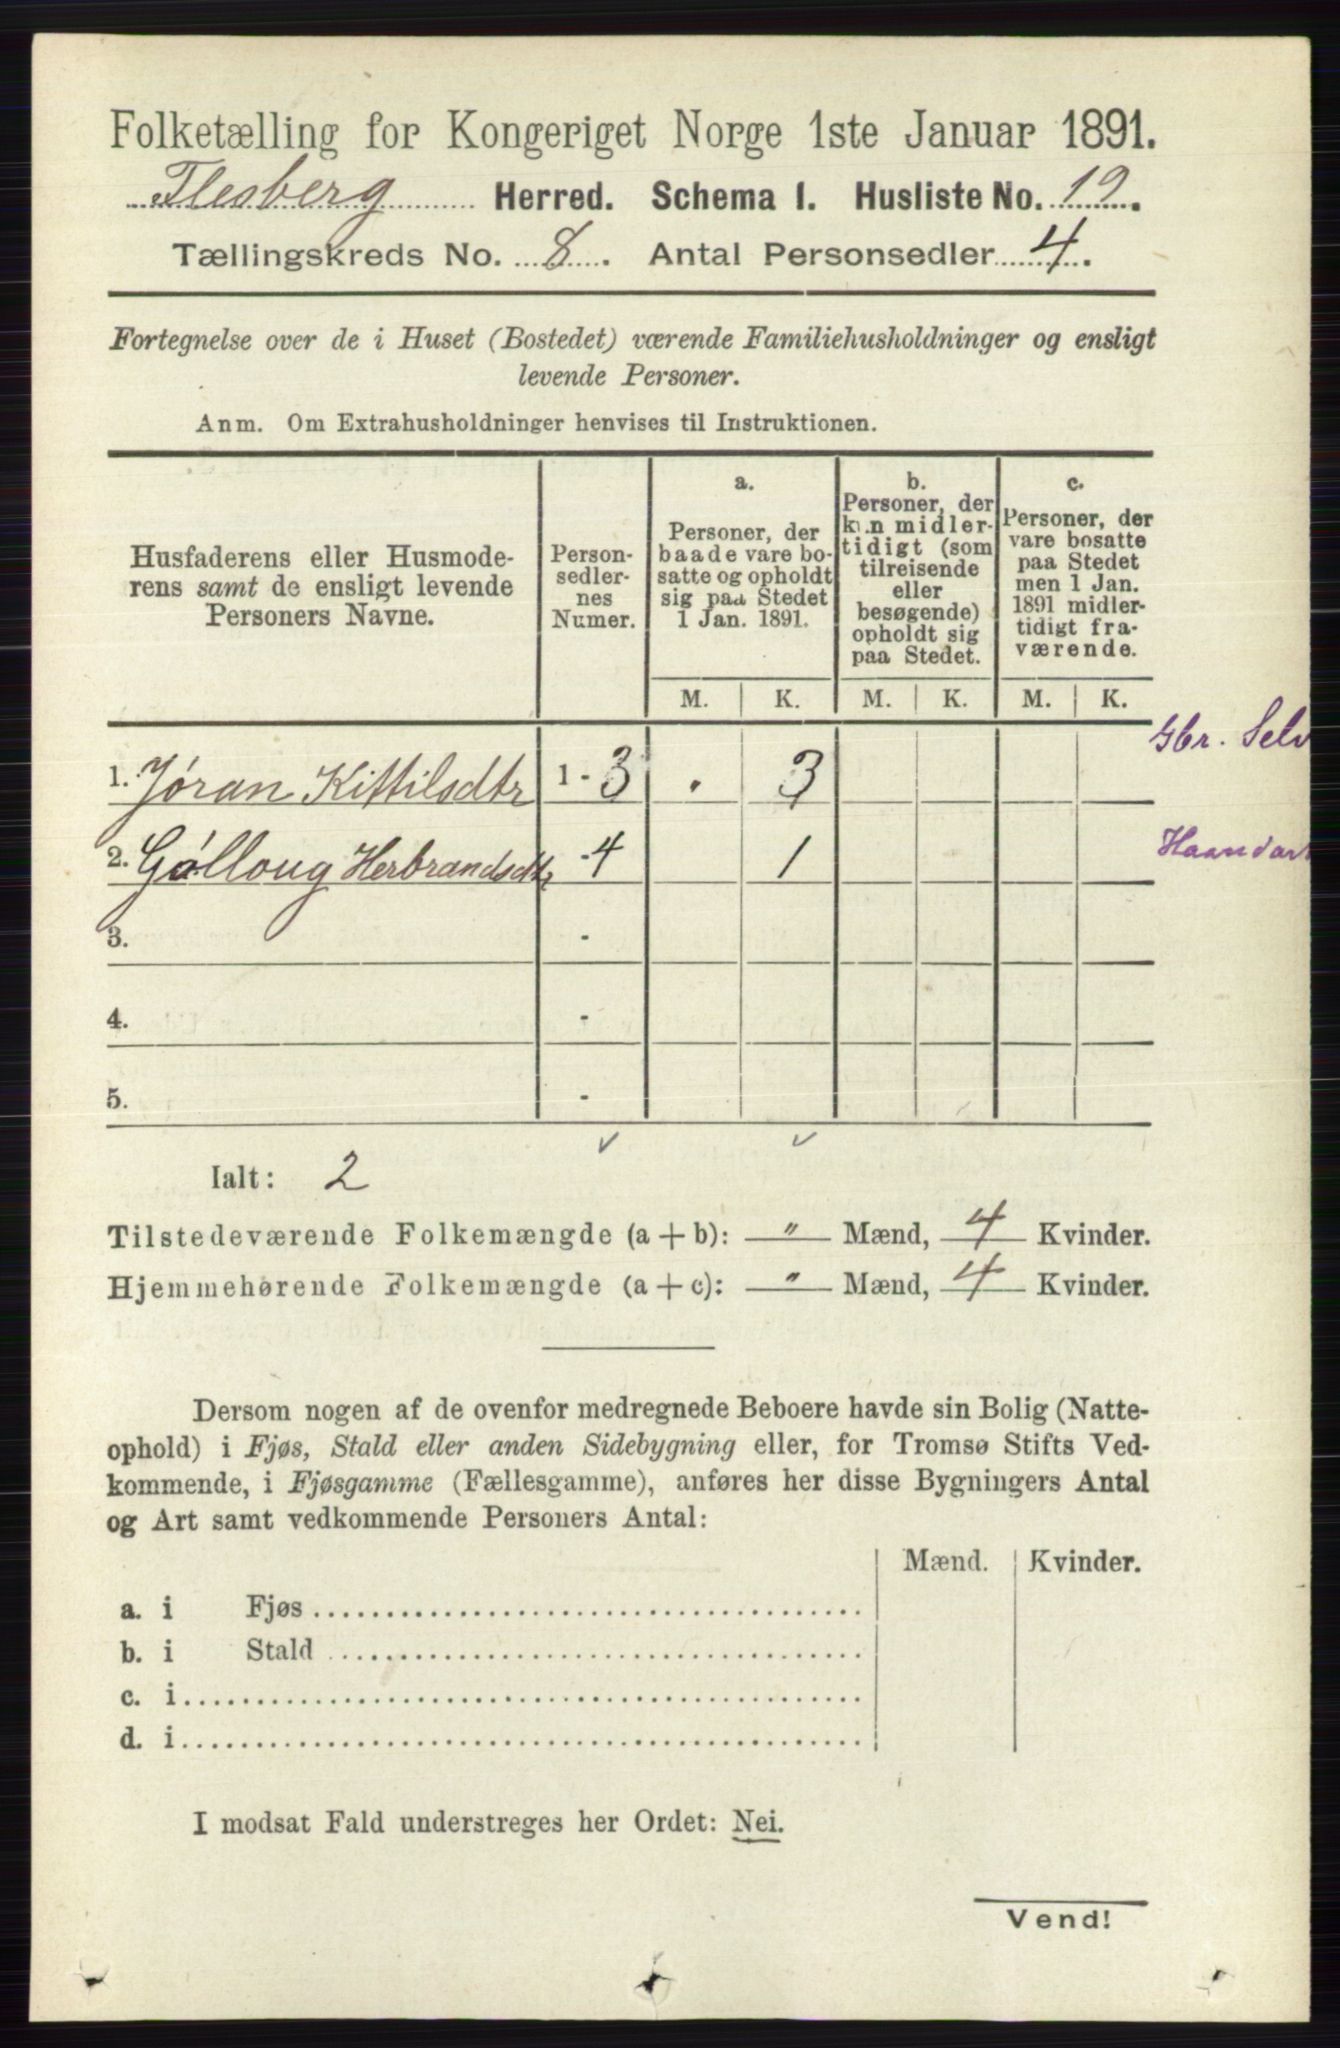 Folketælling for Kongeriget Norge 1ste Januar 1891.
Flesberg Herred. Schema I. Husliste No. 19.
Tællingskreds No. 8. Antal Personsedler 4.
Fortegnelse over de i Huset (Bostedet) værende Familiehusholdninger og ensligt
levende Personer.
Anm. Om Extrahusholdninger henvises til Instruktionen.
Husfaderens eller Husmode-
rens samt de ensligt levende
Personers Navne.
Person-
sedler-
nes
Numer.
a.
Personer, der
baade vare bo-
satte og opholdt
sig paa Stedet
1 Jan. 1891.
b.
Personer, der
kun midler-
tidigt (som
tilreisende
eller
besøgende)
opholdt sig
paa Stedet.
c.
Personer, der
vare bosatte
paa Stedet
men 1 Jan.
1891 midler-
tidigt fra-
værende.
M. K. M. K. M. K.
Gbr. Selv
1. Jóran Kittilsdtr 1 - 3 . 3
2. Gólloug Herbrandsdtr - 4 1
Haandar
3. -
4. -
5. -
Ialt: 2
Tilstedeværende Folkemængde (a + b): " Mænd, 4 Kvinder.
Hjemmehørende Folkemængde (a + c): " Mænd, 4 Kvinder.
Dersom nogen af de ovenfor medregnede Beboere havde sin Bolig (Natte-
ophold) i Fjøs, Stald eller anden Sidebygning eller, for Tromsø Stifts Ved-
kommende, i Fjøsgamme (Fællesgamme), anføres her disse Bygningers Antal
og Art samt vedkommende Personers Antal:
Mænd. Kvinder.
a. i Fjøs
b. i Stald
c. i
d. i
I modsat Fald understreges her Ordet: Nei.
Vend!